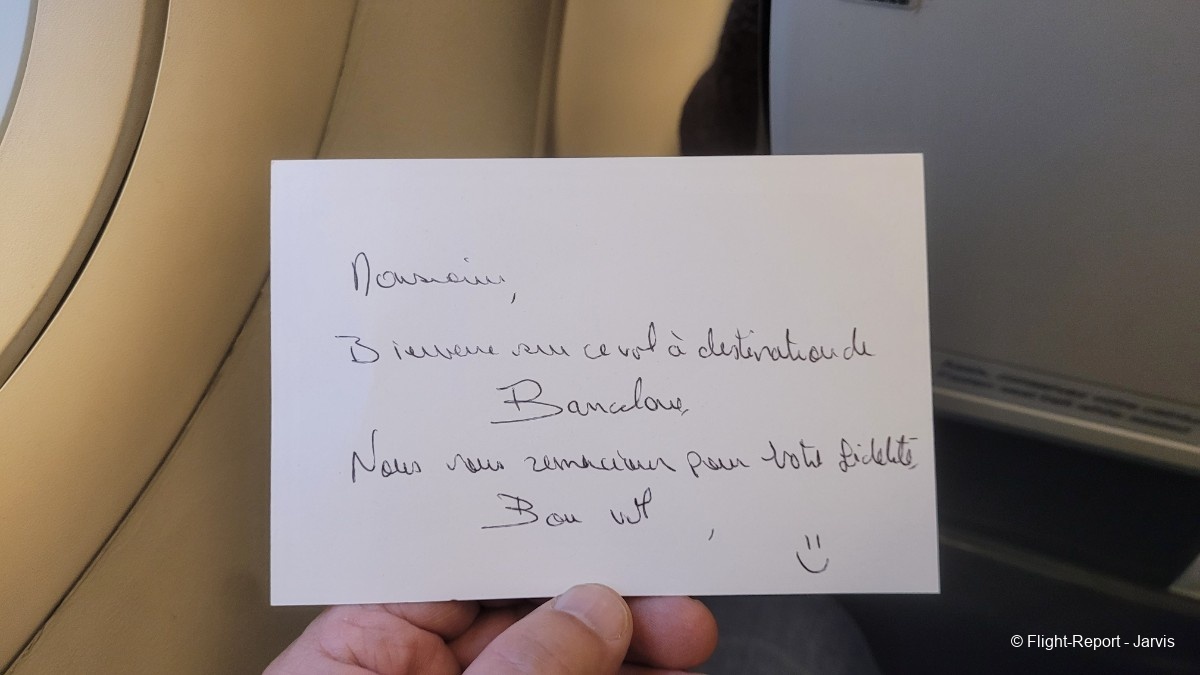 Monsieur,
Bienvenue sur ce vol à destination de
Barcelone,
Nous vous remercions pour votre fidélité,
Bon vol,
© Flight-Report - Jarvis